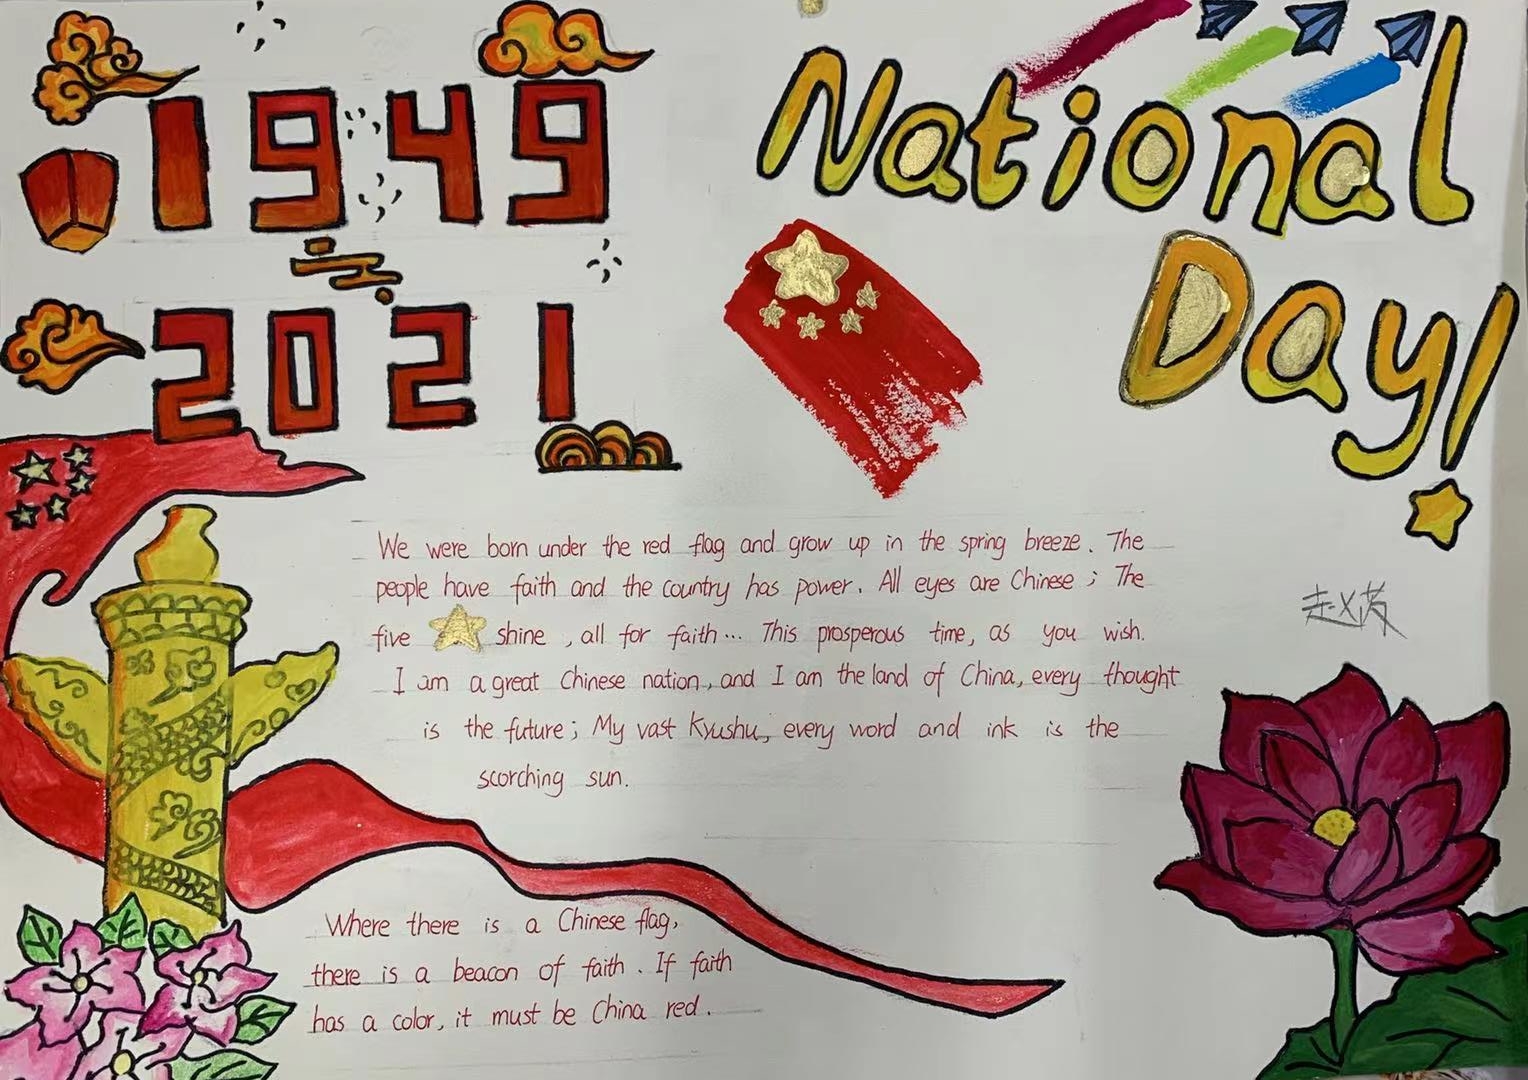 1949
2021
National
Day!
We were born under the red flag and grow up in the spring breeze. The
people have faith and the country has power. All eyes are Chinese; The
five shine, all for faith... This prosperous time, as you wish.
I am a great Chinese nation, and I am the land of China, every thought
is the future; My vast Kyushu, every word and ink is the
scorching sun.
Where there is a Chinese flag,
there is a beacon of faith. If faith
has a color, it must be China red.